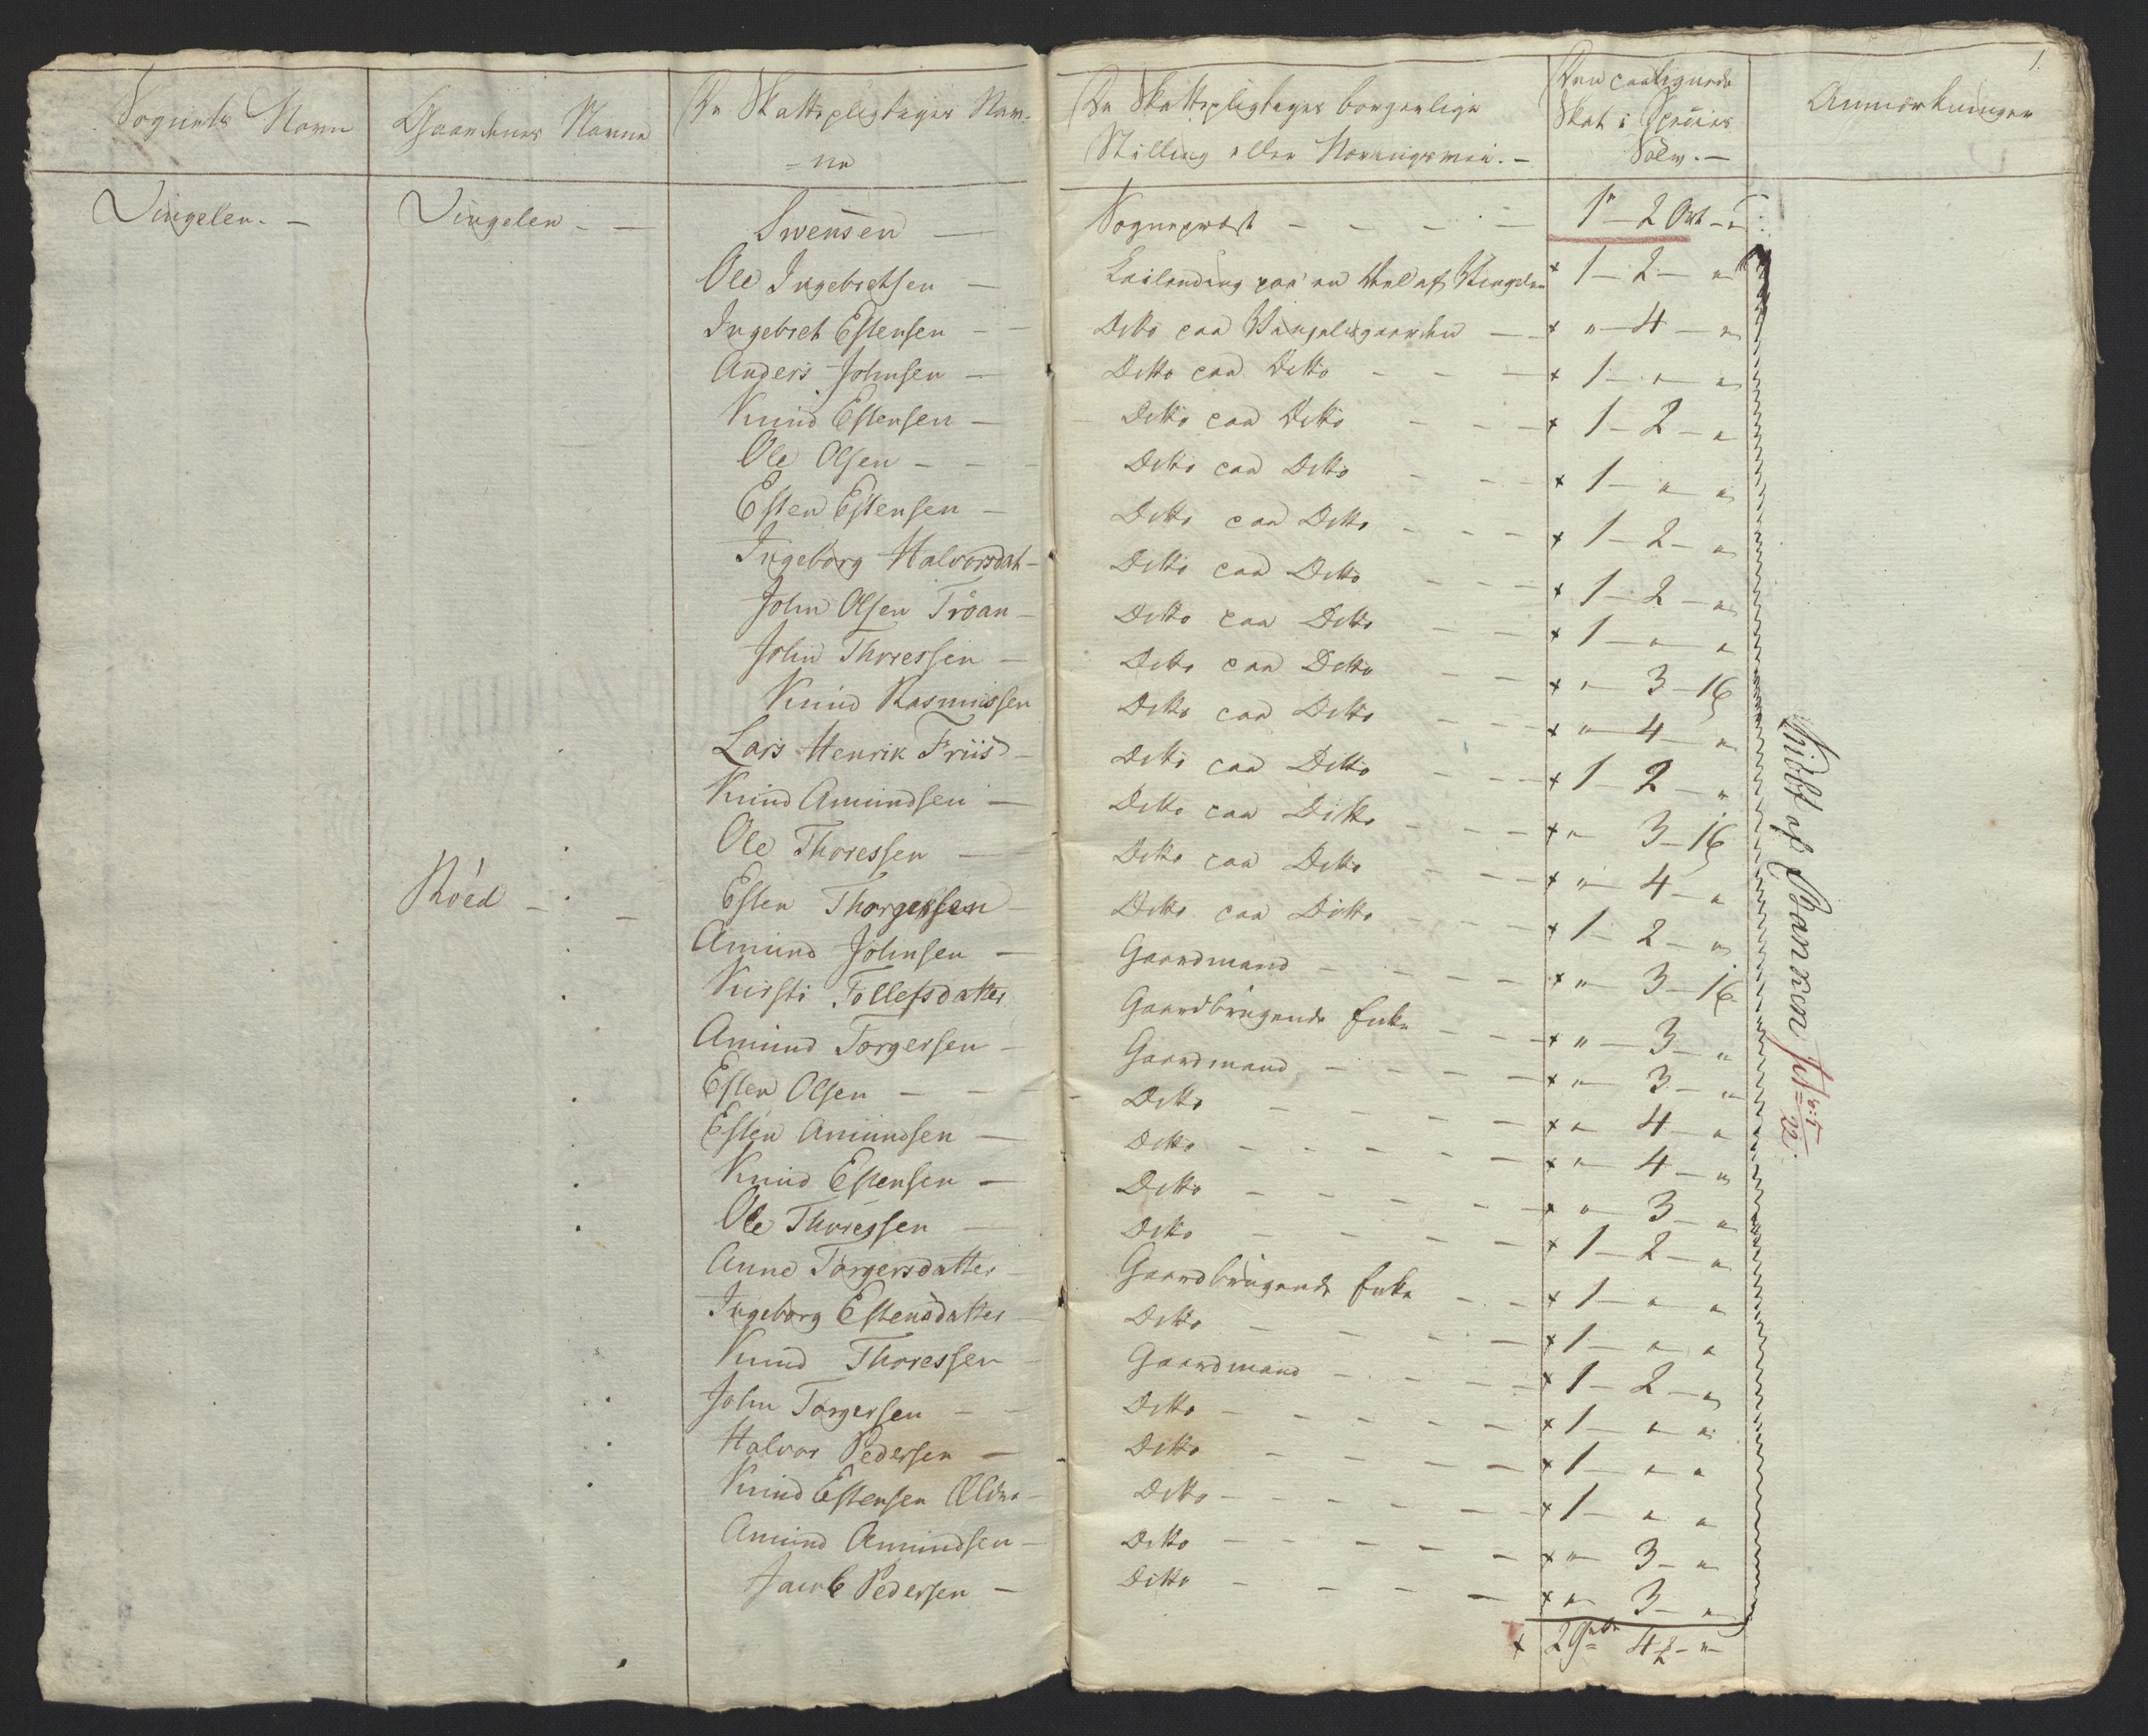 1.
Sognets Navn | Gaardenes Navne | De Skattepligtiges Nav- | De Skattepligtiges borgerlige | Den paalignede | Anmærkninger
=ne | Stilling eller Næringsvei. – | Skat i Species
Sølv. –
Vingelen. – | Vingelen – – | Swensen – | Sognepræst – – – – | 1 – 2 Ort – "
Ole Ingebretsen – | Leilending paa en Deel af Vingelen | + 1 – 2 – "
Ingebret Estensen – – | Ditto paa Vingelsgaarden – – | + " – 4 – "
Anders Johnsen – | Ditto paa Ditto – – – | + 1 – " – "
Knud Estensen – | Ditto paa Ditto – – – | + 1 – 2 – "
Ole Olsen – – – | Ditto paa Ditto – – – | + 1 – " – "
Esten Estensen – | Ditto paa Ditto – – – | + 1 – 2 – "
Ingeborg Halvorsdat – | Ditto paa Ditto – – – | + 1 – 2 – "
John Olsen Trøan – | Ditto paa Ditto – – | + 1 – " – "
John Thoressen – | Ditto paa Ditto – – | + " – 3 – 16
Knud Rasmussen | Ditto paa Ditto – – – | + " – 4 – "
Lars Henrik Friis – | Ditto paa Ditto – – – | + 1 – 2 – "
Knud Amundsen – | Ditto paa Ditto – – – | + " – 3 – 16
Ole Thoressen – | Ditto paa Ditto – – – | + " – 4 – "
Røed – – | Esten Thorgersen – | Ditto paa Ditto – – – | + 1 – 2 – "
Amund Johnsen – | Gaardmand – – – – | + " – 3 – 16
Kirsti Tollefsdatter | Gaardbrugende Enke – – – | + " – 3 – "
Amund Torgersen – | Gaardmand – – – – | + " – 3 – "
Esten Olsen – – – | Ditto – – – – – | + " – 4 – "
Esten Amundsen – | Ditto – – – – – | + " – 4 – "
Knud Estensen – | Ditto – – – – – | + " – 3 – "
Ole Thoressen – | Ditto – – – – – | + 1 – 2 – "
Anne Torgersdatter – | Gaardbrugende Enke – – | + 1 – " – "
Ingeborg Estensdatter – | Ditto – – – – – | + 1 – " – "
Knud Thoressen – | Gaardmand – – – – | + 1 – 2 – "
John Torgersen – – | Ditto – – – – – | + 1 – " – "
Halvor Pedersen – | Ditto – – – – – | + 1 – " – "
Knud Estensen Eldre – | Ditto – – – – – | + 1 – " – "
Amund Amundsen – | Ditto – – – – – | + " – 3 – "
Jacob Pedersen – | Ditto – – – – | + " – 3 – "
+ 29 4 – " –